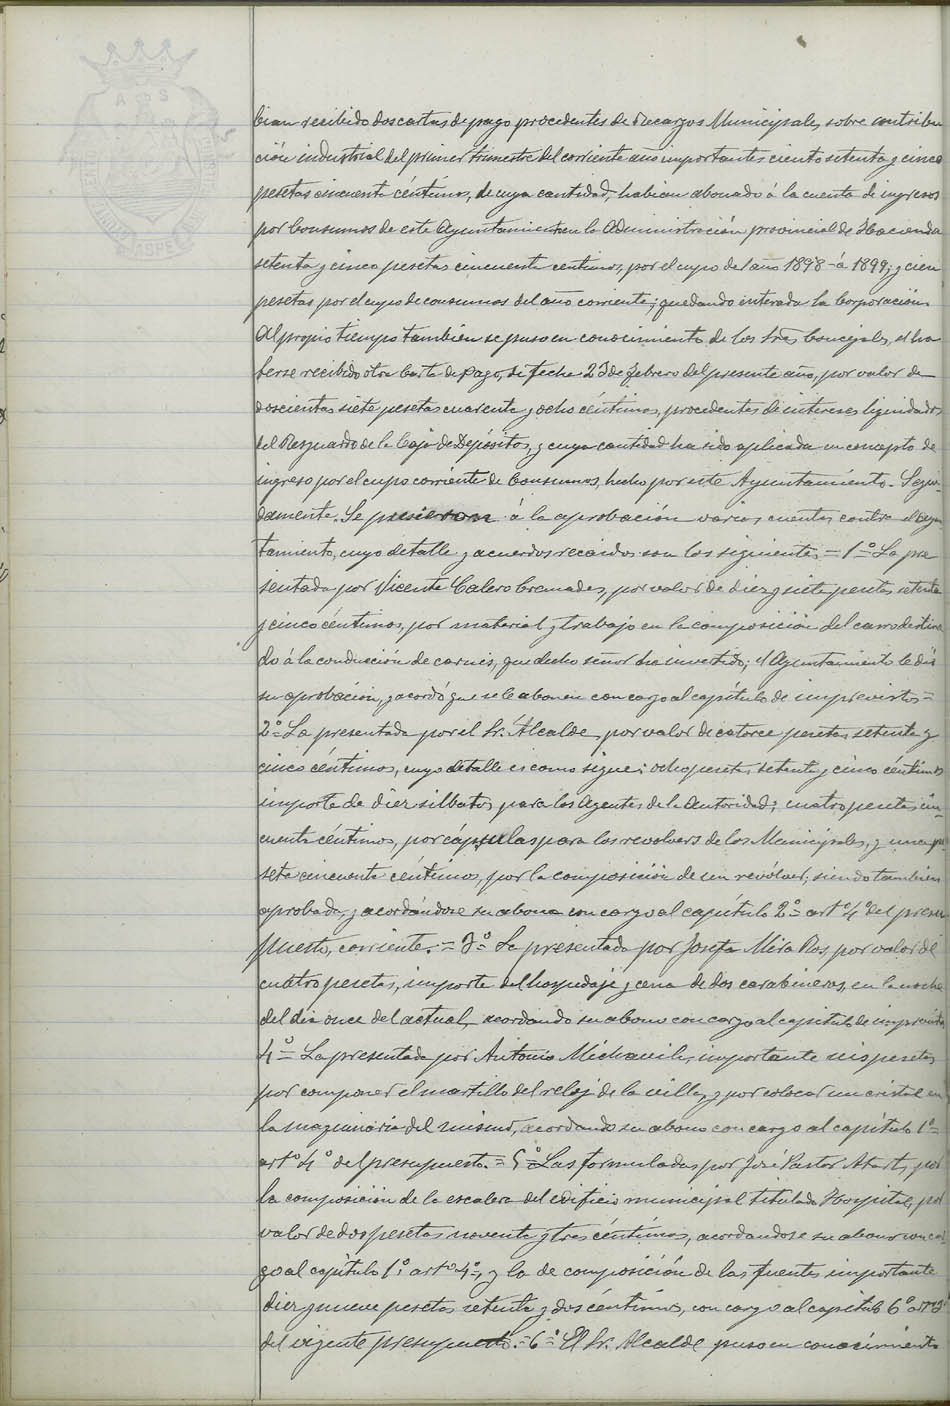 bian recibido dos cartas de pago procedentes de Recargos Municipales, sobre contribu
ción industrial del primer trimestre del corriente año importantes ciento setenta y cinco
pesetas cincuenta céntimos, de cuya cantidad, habian abonado á la cuenta de ingresos
por Consumos de este Ayuntamiento en la Administración provincial de Hacienda
setenta y cinco pesetas cincuenta centimos, por el cupo del año 1898 á 1899; y cien
pesetas por el cupo de consumos del año corriente; quedando enterada la Corporación.
Al propio tiempo tambien se puso en conocimiento de los Sres Concejales, el ha
berse recibido otra Carta de pago, de fecha 23 de febrero del presente año, por valor de
doscientas siete pesetas cuarenta y ocho céntimos, procedentes de intereses liquidados
del Resguardo de la Caja de Depósitos, y cuya cantidad ha sido aplicada en concepto de
ingreso por el cupo corriente de Consumos, hecho por este Ayuntamiento. Segui-
damente. Se pusieron á la aprobación varias cuentas contra el Ayun
tamiento, cuyo detalle y acuerdos recaidos son los siguientes = 1º La pre
sentada por Vicente Calero Cremades, por valor de diez y siete pesetas setenta
y cinco céntimos, por material y trabajo en la composición del carro destina
do á la conducción de carnes, que dicho señor ha invertido; el Ayuntamiento le dió
su aprobación, y acordó que se le abonen con cargo al capítulo de imprevistos =
2º La presentada por el Sr. Alcalde, por valor de catorce pesetas setenta y
cinco céntimos, cuyo detalle es como sigue: ocho pesetas setenta y cinco céntimos
importe de diez silbatos para los Agentes de la Autoridad; cuatro pesetas cin-
cuenta céntimos, por cápsulas para los revolvers de los Municipales, y una pe
seta cincuenta céntimos, por la composición de un revólver; siendo tambien
aprobada, y acordándose su abono con cargo al capítulo 2º artº 4º del presu
puesto, corriente. = 3º La presentada por Josefa Mira Ros, por valor de
cuatro pesetas, importe del hospedaje y cena de dos carabineros, en la noche
del dia once del actual, acordando su abono con cargo al capitulo de imprevistos
4º La presentada por Antonio Michavila, importante seis pesetas
por componer el martillo del reloj de la villa, y por colocar un cristal en
la maquinaria del mismo, acordando su abono con cargo al capítulo 1º
artº 4º del presupuesto. = 5º Las formuladas por José Pastor, por
la composición de la escalera del edificio municipal titulado Hospital, por
valor de dos pesetas noventa y tres céntimos, acordandose su abono con car-
go al capítulo 1º, artº 4º, y la de composición de las fuentes importante
diez y nueve pesetas setenta y dos céntimos, con cargo al capítulo 6º artº 3º
del vigente presupuesto. = 6º El Sr. Alcalde puso en conocimiento